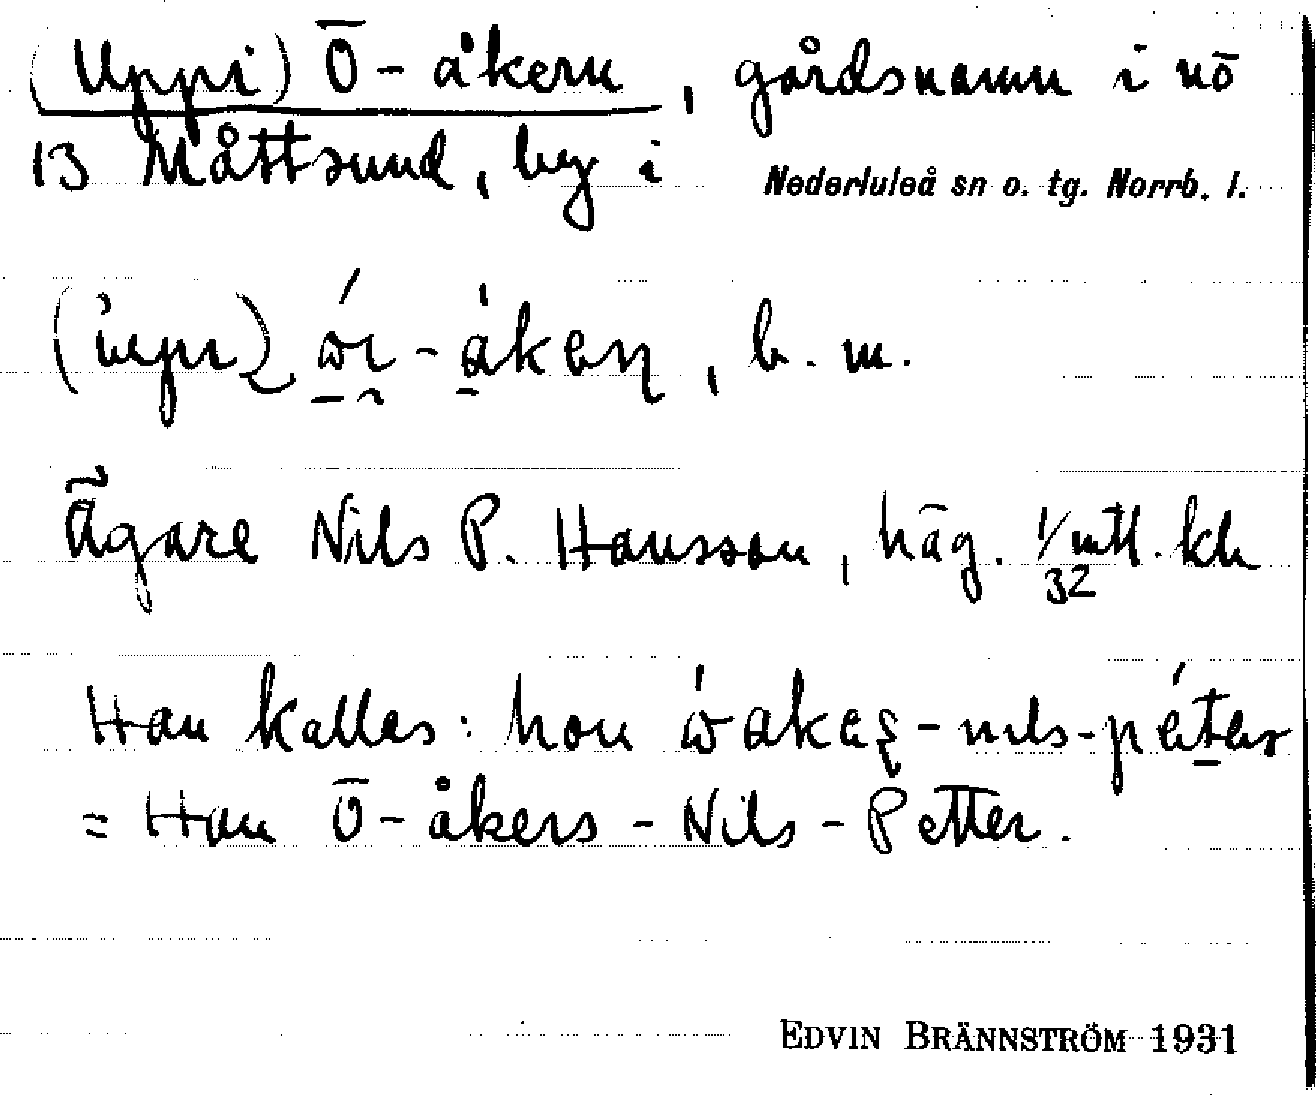 (Uppi) Ō-åkern, gårdsnamn i nō
13 Måttsund, by i Nederluleå sn o. tg. Norrb. l.
b. m.
Ägare Nils P. Hansson, häg. 1/32 mtl. kh
Han kallas: hon
= Han Ō-åkers-Nils-Petter.
EDVIN BRÄNNSTRÖM 1931